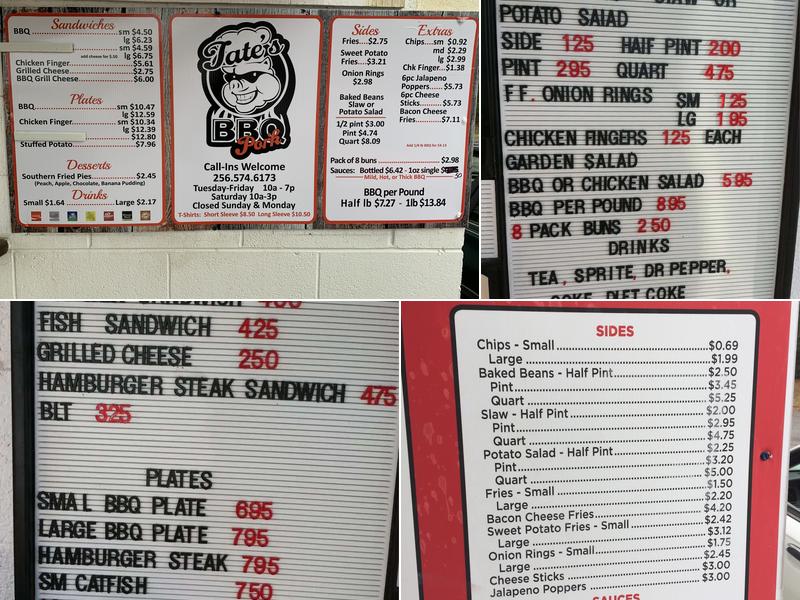 Sandwiches
BBQ sm $4.50
lg $6.23
sm $4.59
add cheese for $.50 lg $6.75
Chicken Finger $5.61
Grilled Cheese $2.75
BBQ Grill Cheese $6.00
Plates
BBQ sm $10.47
lg $12.59
Chicken Finger sm $10.34
lg $12.39
$12.80
Stuffed Potato $7.96
Desserts
Southern Fried Pies $2.45
(Peach, Apple, Chocolate, Banana Pudding)
Drinks
Small $1.64 Large $2.17
Tate's
BBQ
Pork
Call-Ins Welcome
256.574.6173
Tuesday-Friday 10a - 7p
Saturday 10a-3p
Closed Sunday & Monday
T-Shirts: Short Sleeve $8.50 Long Sleeve $10.50
Sides
Fries....$2.75
Sweet Potato
Fries....$3.21
Onion Rings
$2.98
Baked Beans
Slaw or
Potato Salad
1/2 pint $3.00
Pint $4.74
Quart $8.09
Extras
Chips....sm $0.92
md $2.29
lg $2.99
Chk Finger...$1.38
6pc Jalapeno
Poppers......$5.73
6pc Cheese
Sticks.........$5.73
Bacon Cheese
Fries...........$7.11
Add 1/4 lb BBQ for $4.13
Pack of 8 buns $2.98
Sauces: Bottled $6.42 - 1oz single .50
Mild, Hot, or Thick BBQ
BBQ per Pound
Half lb $7.27 - 1lb $13.84
POTATO SALAD
SIDE 125 HALF PINT 200
PINT 295 QUART 475
F.F. ONION RINGS SM 125
LG 195
CHICKEN FINGERS 125 EACH
GARDEN SALAD
BBQ OR CHICKEN SALAD 595
BBQ PER POUND 895
8 PACK BUNS 250
DRINKS
TEA, SPRITE, DR PEPPER,
COKE, DIET COKE
SANDWICH
FISH SANDWICH 425
GRILLED CHEESE 250
HAMBURGER STEAK SANDWICH 475
BLT 325
PLATES
SMAL BBQ PLATE 695
LARGE BBQ PLATE 795
HAMBURGER STEAK 795
SM CATFISH 750
SIDES
Chips - Small $0.69
Large $1.99
Baked Beans - Half Pint $2.50
Pint $3.45
Quart $5.25
Slaw - Half Pint $2.00
Pint $2.95
Quart $4.75
Potato Salad - Half Pint $2.25
Pint $3.20
Quart $5.00
Fries - Small $1.50
Large $2.20
Bacon Cheese Fries $4.20
Sweet Potato Fries - Small $2.42
Large $3.12
Onion Rings - Small $1.75
Large $2.45
Cheese Sticks $3.00
Jalapeno Poppers $3.00
SAUCES